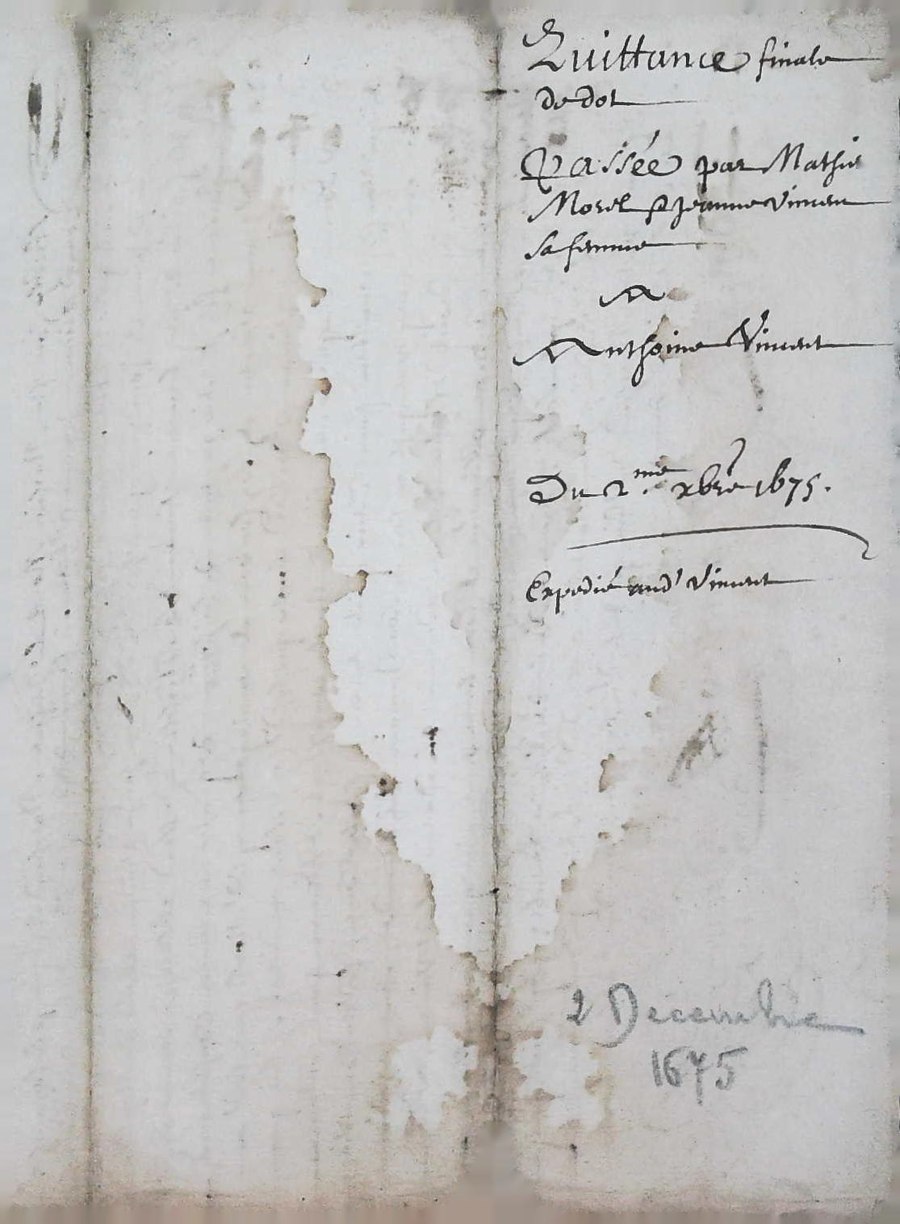 Quittance finale
de dot
Passée par Mathie
Morel & Jeanne Vincen
sa femme
A
Anthoine Vincent
Du 2.me xbre 1675.
Expedié aud' Vincent
2 Decembre
1675